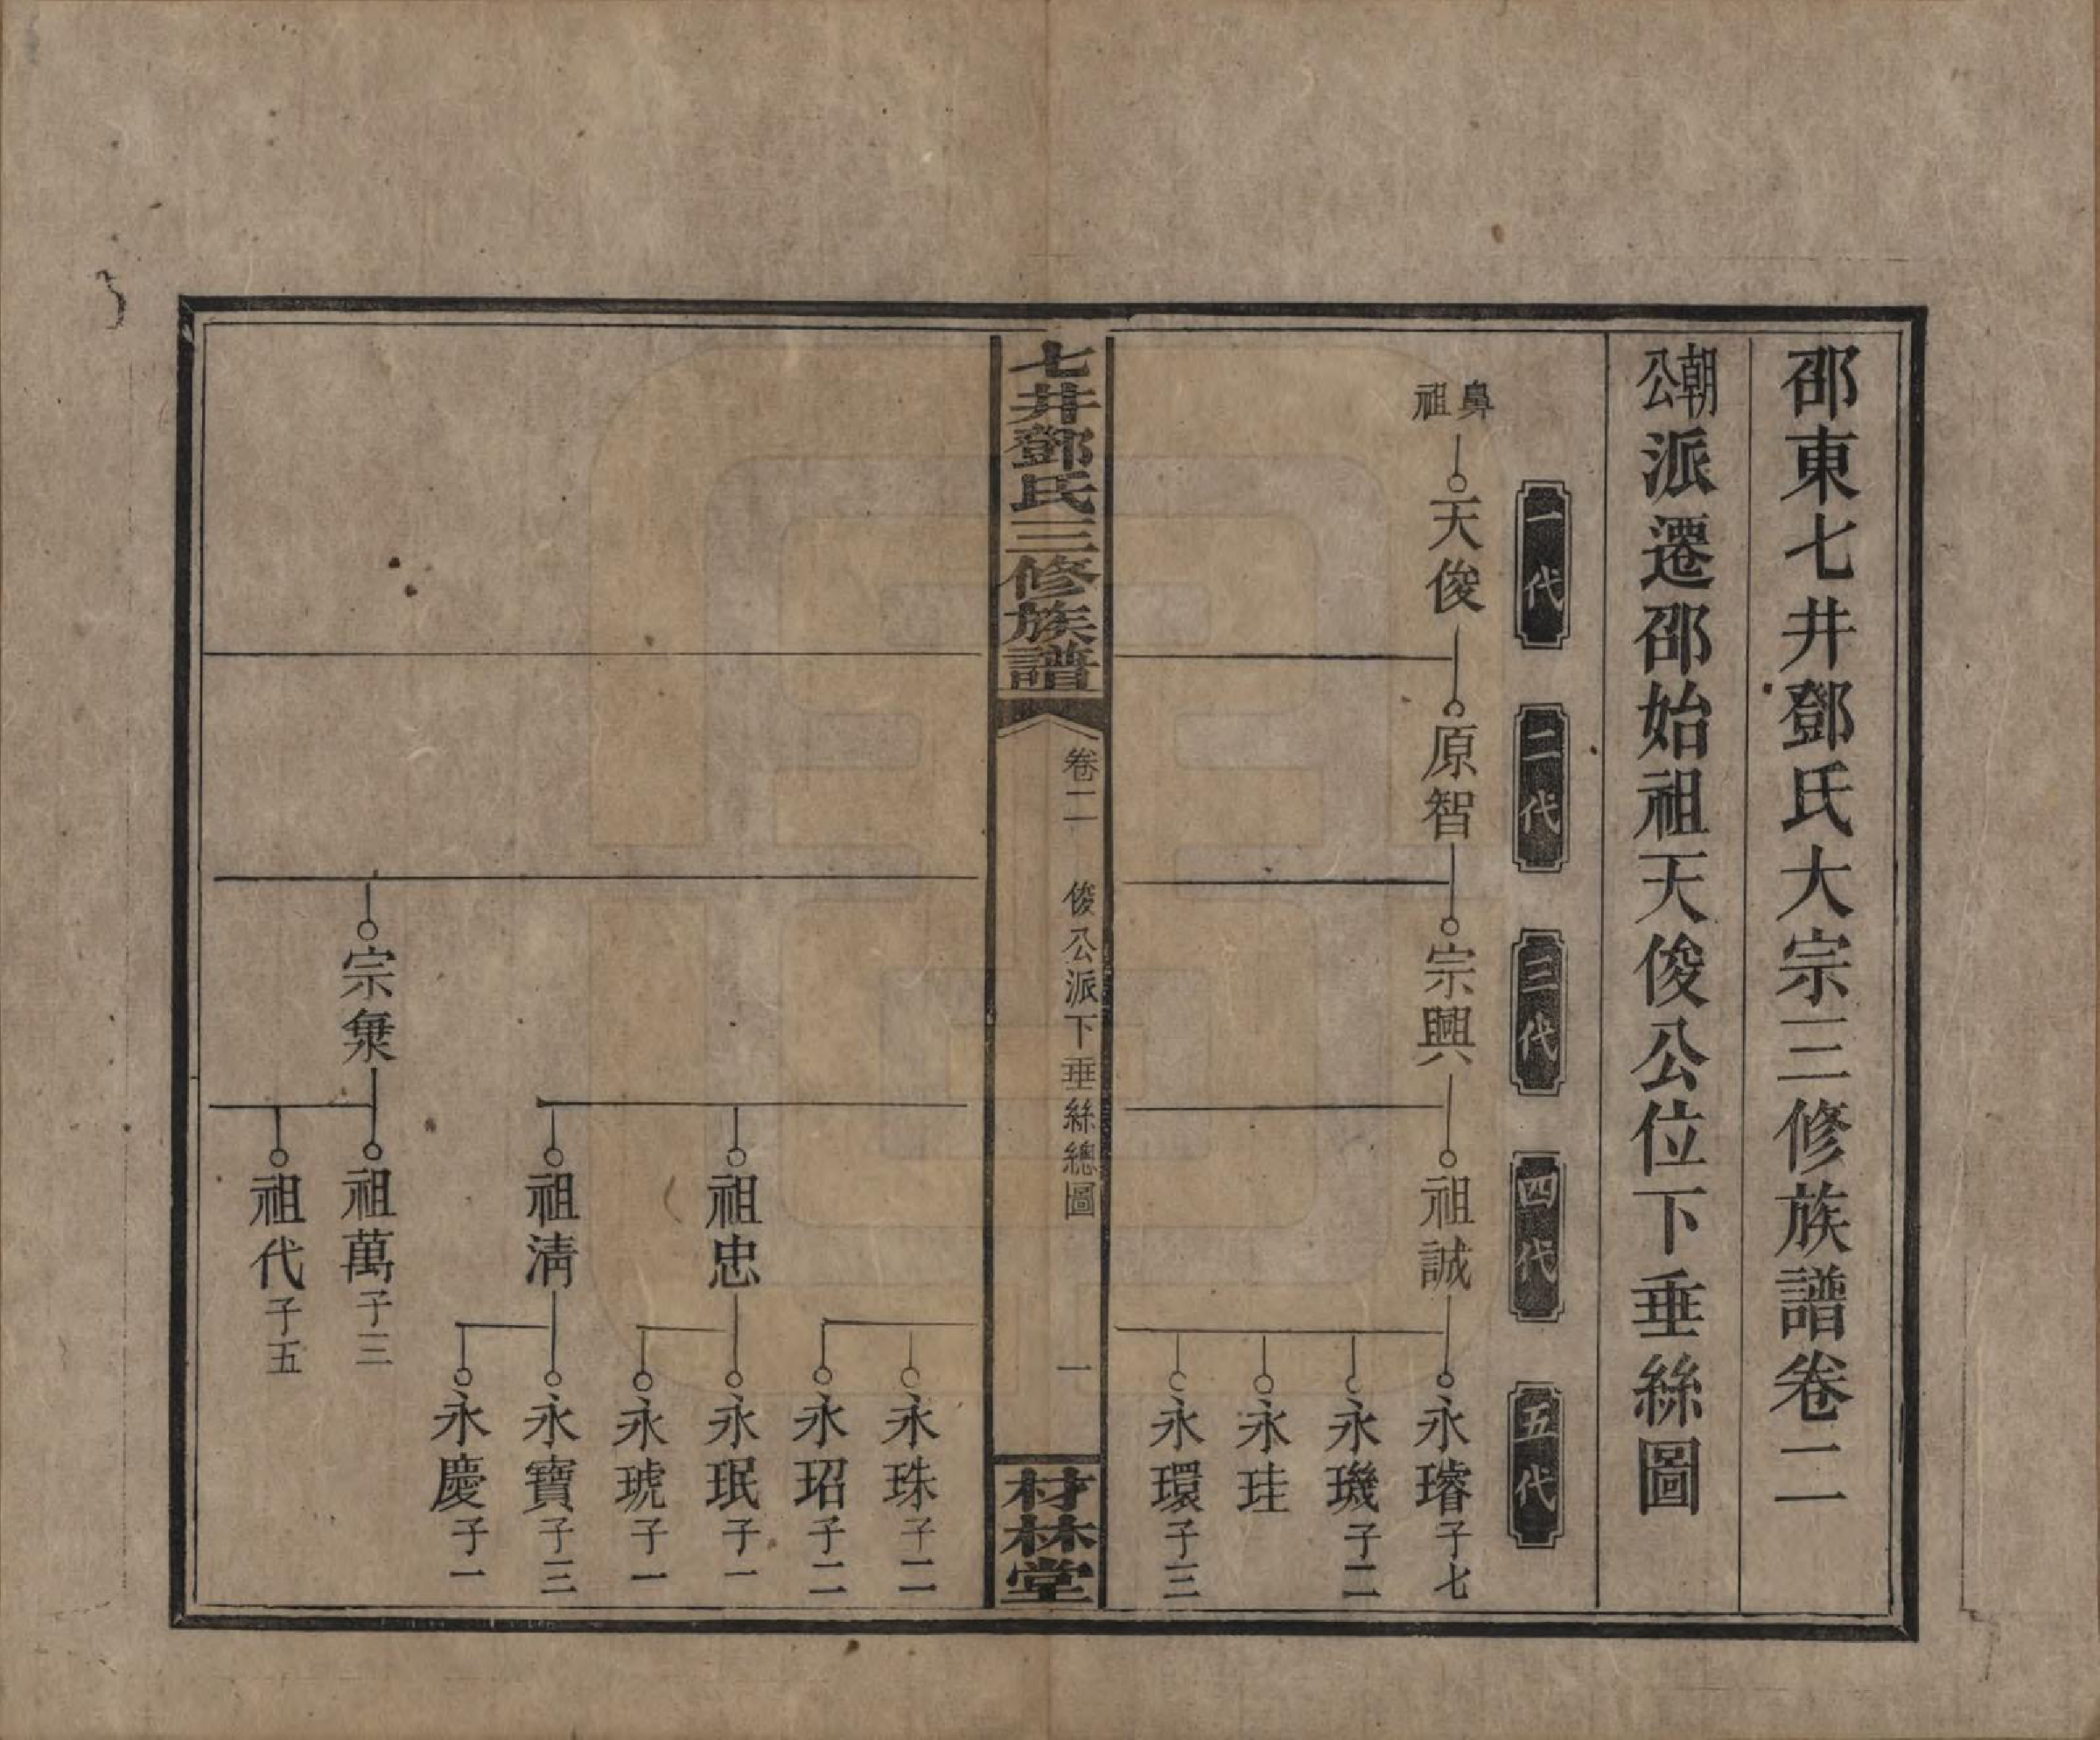 邵東七井鄧氏大宗三修族譜卷二
朝公派遷邵始祖天俊公位下垂絲圖
一代
二代
三代
四代
五代
鼻祖
天俊
原智
宗興
祖誠
永璿子七
永璣子二
永珪
永環子三
七井鄧氏三修族譜
卷二
俊公派下垂絲總圖
一
材林堂
永珠子二
永玿子二
祖忠
永珉子一
永琥子一
祖清
永寶子三
永慶子一
宗粲
祖萬子三
祖代子五